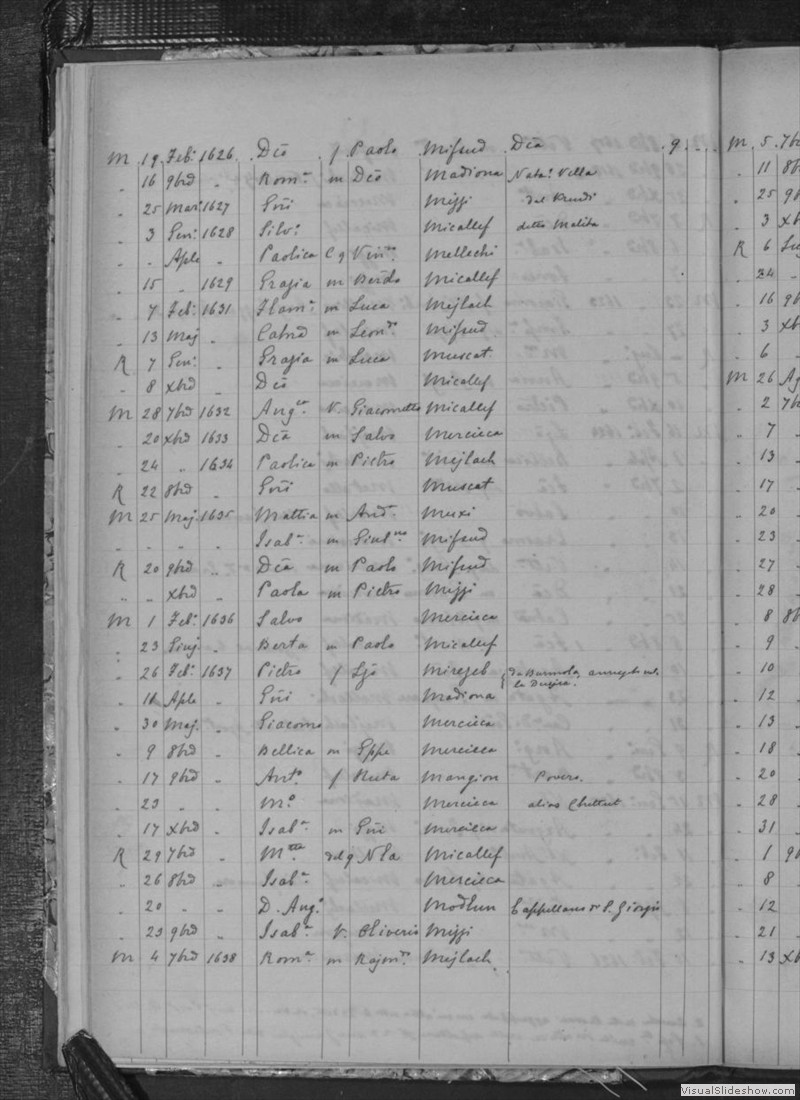 M 19 Feb: 1626 Dca f Paolo Mifsud Dca 9
" 16 9brd " Romª m Dco Madiona Natª Villa
" 25 Mar: 1627 Gni Mizzi dal Krendi
" 3 Gen: 1628 Silvº Micallef detto Malita
" " Aple Paolica C q Vinzo Mellechi
" 15 " 1629 Grazia m Berdo Micallef
" 7 Feb: 1631 Flamª m Luca Mejlach
" 13 Maj " Catnd m Leondo Mifsud
R 7 Gen: " Grazia m Luca Muscat
" 8 xbrd " Dco Micallef
M 28 7brd 1632 Angca V. Giacometto Micallef
" 20 xbrd 1633 Dca m Salvo Mercieca
" 24 " 1634 Paolica m Pietro Mejlach
R 22 8brd " Gni Muscat
M 25 Maj. 1635 Mattia m And: Muxi
" " " Isabª m Giulno Mifsud
R 20 9brd " Dca m Paolo Mifsud
" " xbrd Paola m Pietro Mizzi
M 1 Feb: 1636 Salvo Mercieca
" 23 Giuj " Berta m Paolo Micallef
" 26 Feb: 1637 Pietro f Ljo Mirezeb da Burmola,
" 11 Aple " Gni Madiona
" 30 Maj. " Giacomo Mercieca
" 9 8brd " Bellica m Gppe Mercieca
" 17 9brd " Antº f Ruta Mangion Povero.
" 23 " " Mº Mercieca alias Chettut
" 17 xbrd " Isabª m Gni Mercieca
R 29 7brd " Mtta del q Nla Micallef
" 26 8brd " Isabª Mercieca
" 20 " " D. Angº Modhun Cappellano S. Giorgio
" 23 9brd " Isabª V. Oliverio Mizzi
M 4 7brd 1638 Romª m Rajmdo Mejlach
M 5 7br
" 11 8b
" 25 9b
" 3 xb
R 6 Lug
" 24
" 16 9b
" 3 xb
" 6
M 26 Ag
" 2 7b
" 7
" 13
" 17
" 20
" 23
" 27
" 28
" 8 8b
" 9
" 10
" 12
" 13
" 18
" 20
" 28
" 31
" 1 9b
" 8
" 12
" 21
" 13 xb
VisualSlideshow.com